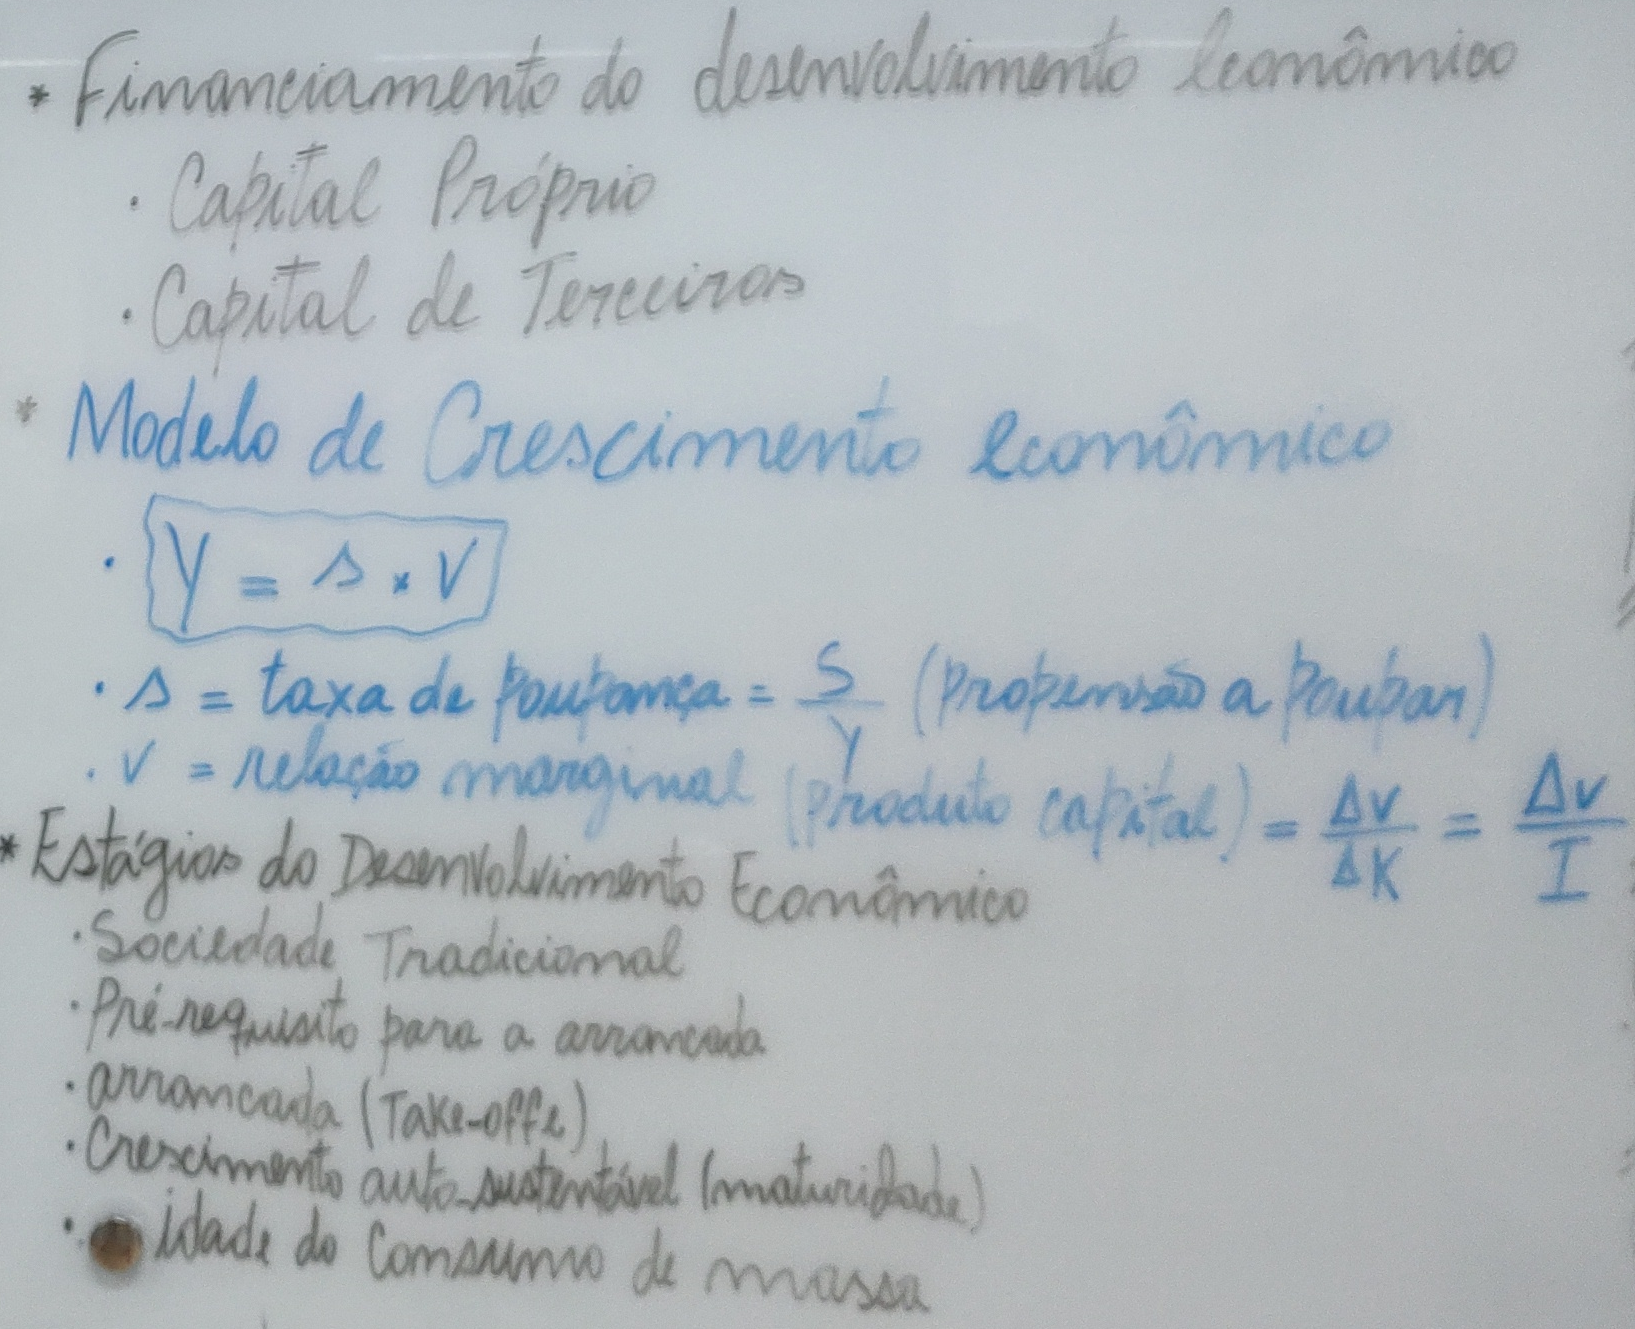 * Financiamento do desenvolvimento econômico
· Capital Próprio
· Capital de Terceiros
* Modelo de Crescimento econômico
· Y = s * v
· s = taxa de poupança = S/Y (propensão a poupar)
· v = relação marginal (produto capital) = Δv/ΔK = Δv/I
* Estágios do Desenvolvimento Econômico
· Sociedade Tradicional
· Pré-requisito para a arrancada
· arrancada (Take-offe)
· Crescimento auto-sustentável (maturidade)
· idade do Consumo de massa